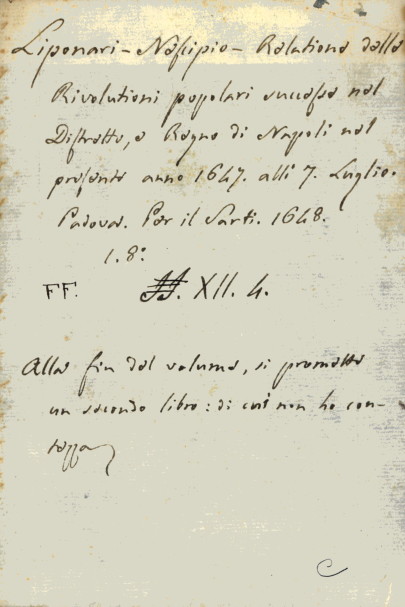 Liponari - Nescipio - Relatione delle
Rivolutioni popolari successe nel
Distretto, e Regno di Napoli nel
presente anno 1647. alli 7. Luglio.
Padova. Per il Sarti. 1648.
1. 8.°
FF. XII. 4.
Alla fin del volume, si promette
un secondo libro: di cui non ho con-
tezza